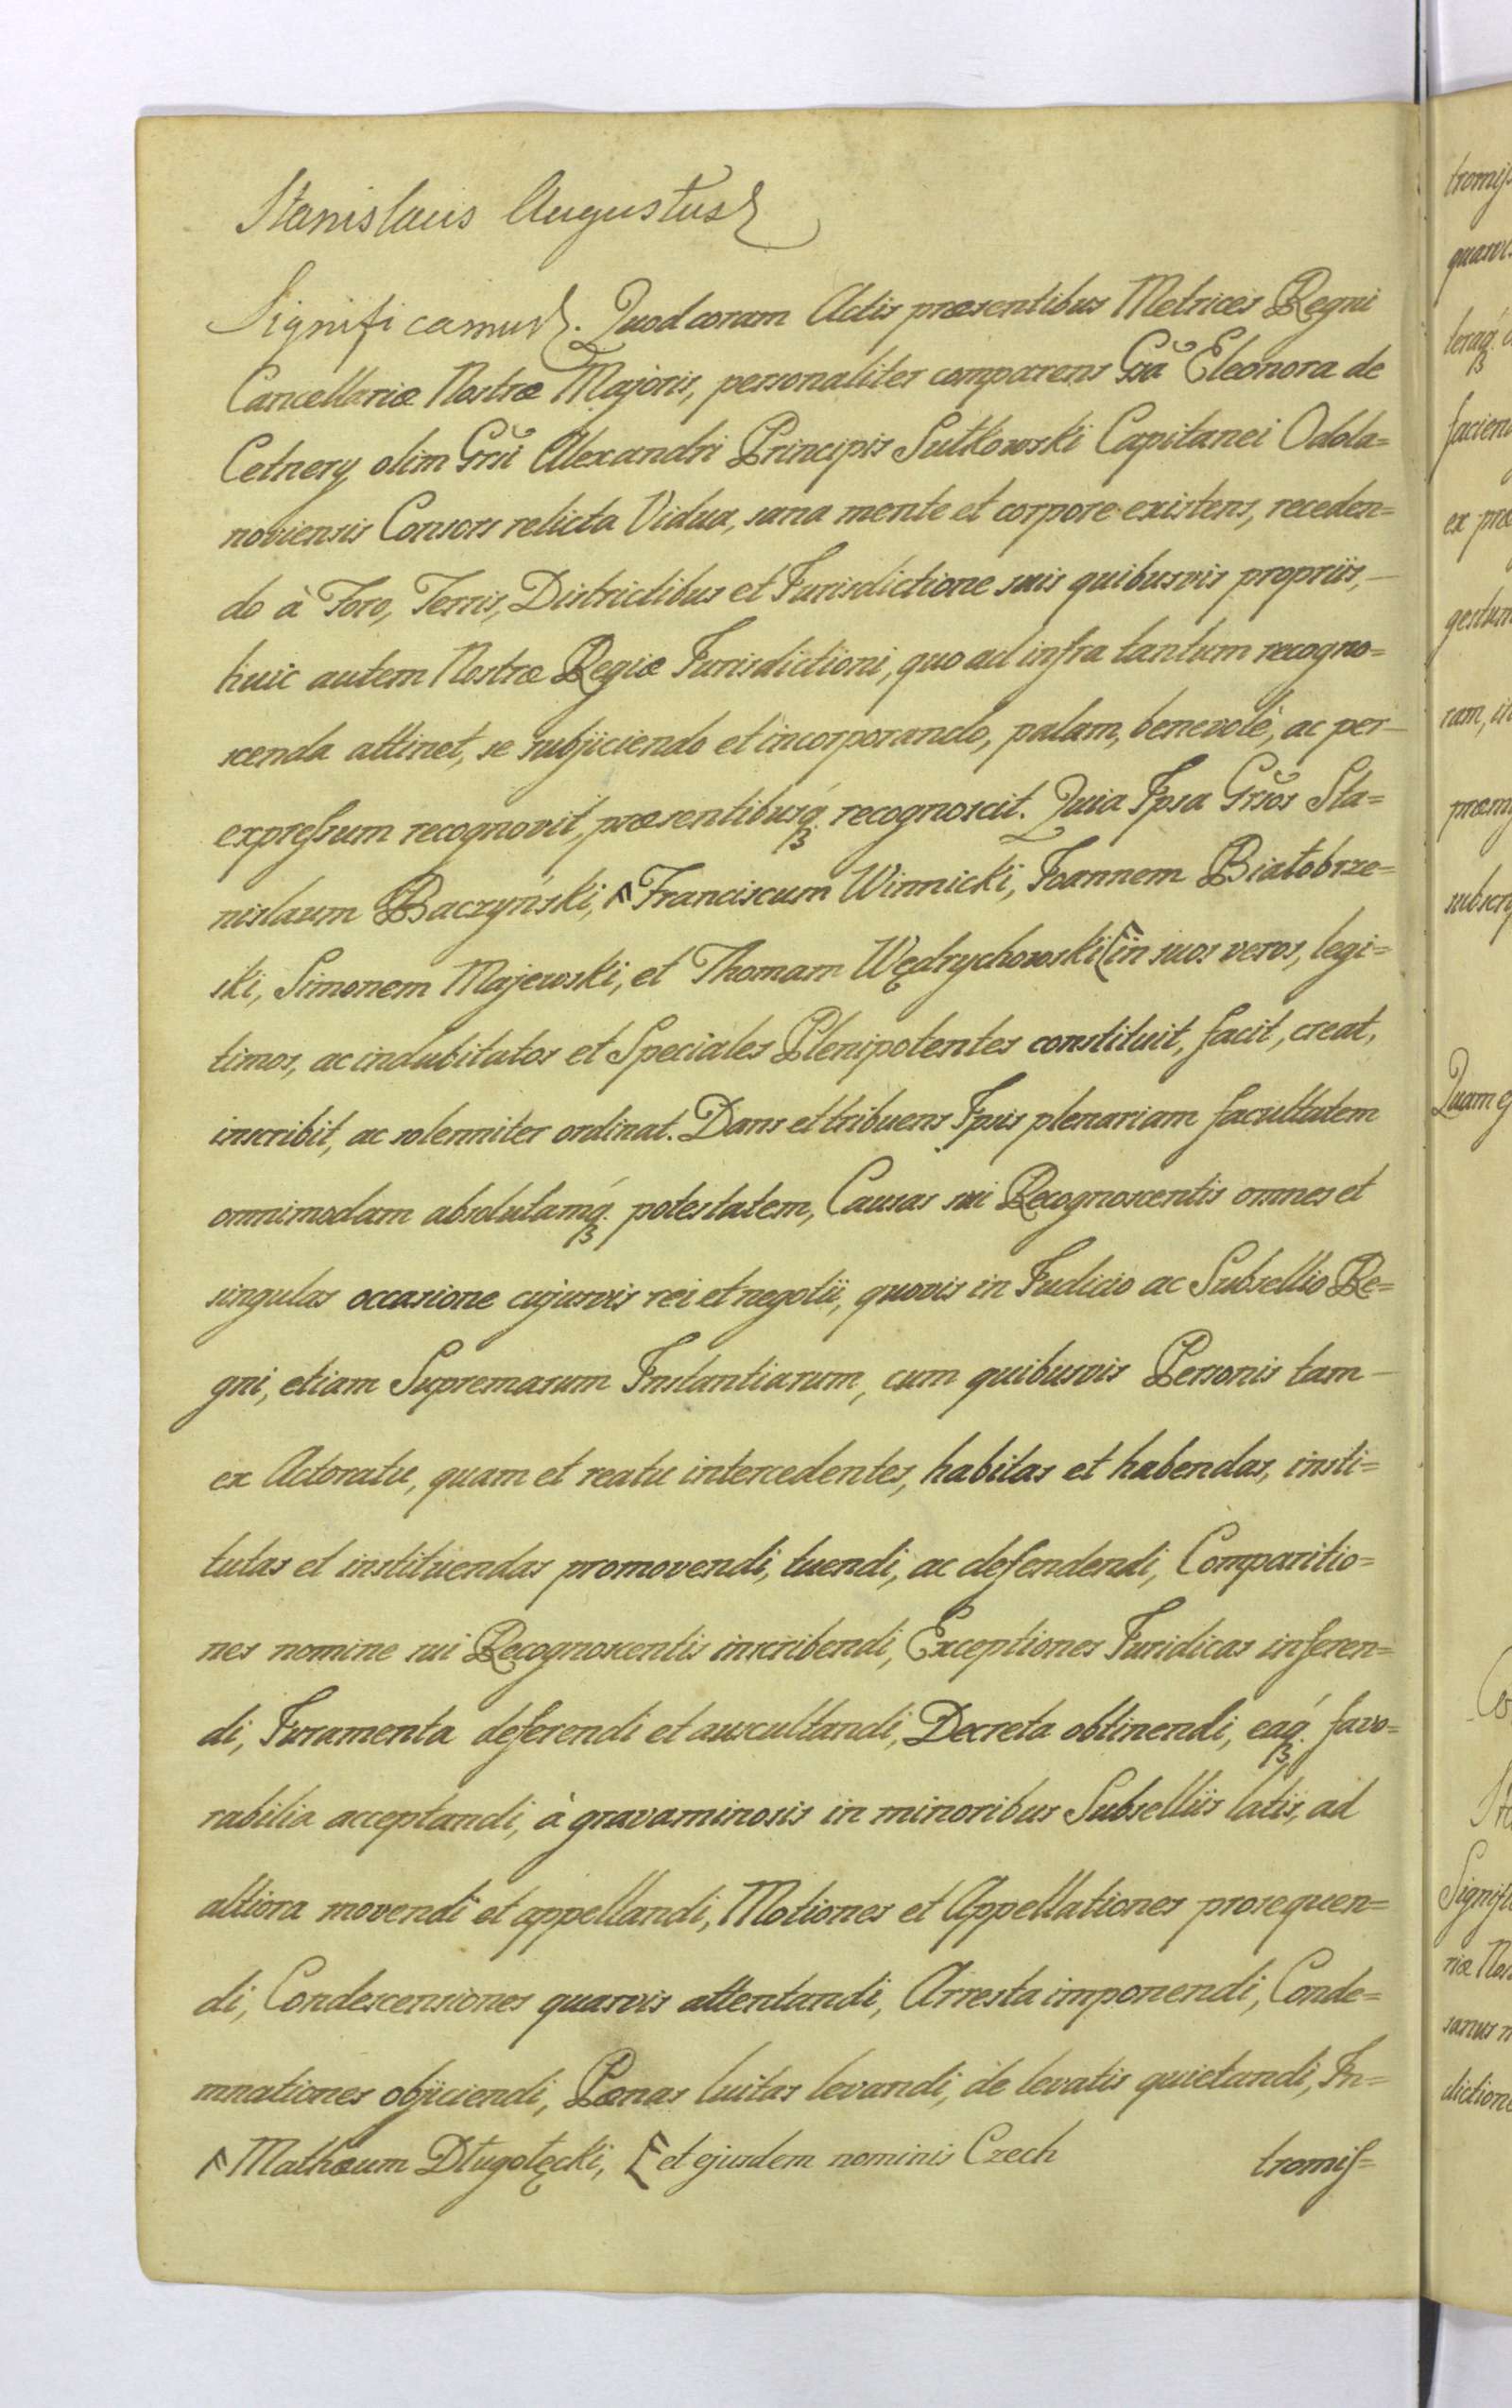 Stanislaus Augustus
Significamus. Quod coram Actis præsentibus Metrices Regni
Cancellariæ Nostræ Majoris, personaliter comparens Gsa Eleonora de
Cetnery olim Gsi Alexandri Principis Sułkowski Capitanei Odola=
noviensis Consors relicta Vidua, sana mente et corpore existens, receden=
do à Foro, Terris, Districtibus et Jurisdictione suis quibusvis propriis,
huic autem Nostræ Regiæ Jurisdictioni, quo ad infra tantum recogno=
scenda attinet, se subjiciendo et incorporando, palam, benevolè, ac per
expressum recognovit, præsentibusq́ recognoscit. Quia Ipsa Gsos Sta=
nislaum Baczyński, Franciscum Winnicki, Joannem Białobrze=
ski, Simonem Majewski, et Thomam Wędrychowski in suos veros, legi=
timos, ac indubitatos et Speciales Plenipotentes constituit, facit, creat,
inscribit, ac solenniter ordinat. Dans et tribuens Ipsis plenariam facultatem
omnimodam absolutamq́ potestatem, Causas sui Recognoscentis omnes et
singulas occasione cujusvis rei et negotii, quovis in Judicio ac Subsellio Re=
gni, etiam Supremarum Instantiarum, cum quibusvis Personis tam
ex Actoratu, quam et reatu intercedentes, habitas et habendas, insti=
tutas et instituendas promovendi, tuendi, ac defendendi, Comparitio=
nes nomine sui Recognoscentis inscribendi, Exceptiones Juridicas inferen=
di, Juramenta deferendi et auscultandi, Decreta obtinendi, eaq́ favo=
rabilia acceptandi, à gravaminosis in minoribus Subselliis latis, ad
altiora movendi et appellandi, Motiones et Appellationes prosequen=
di, Condescensiones quasvis attentandi, Arresta imponendi, Conde=
mnationes objiciendi, Pœnas luitas levandi, de levatis quietandi, In=
Mathæum Długołęcki, et ejusdem nominis Czech
tromis=